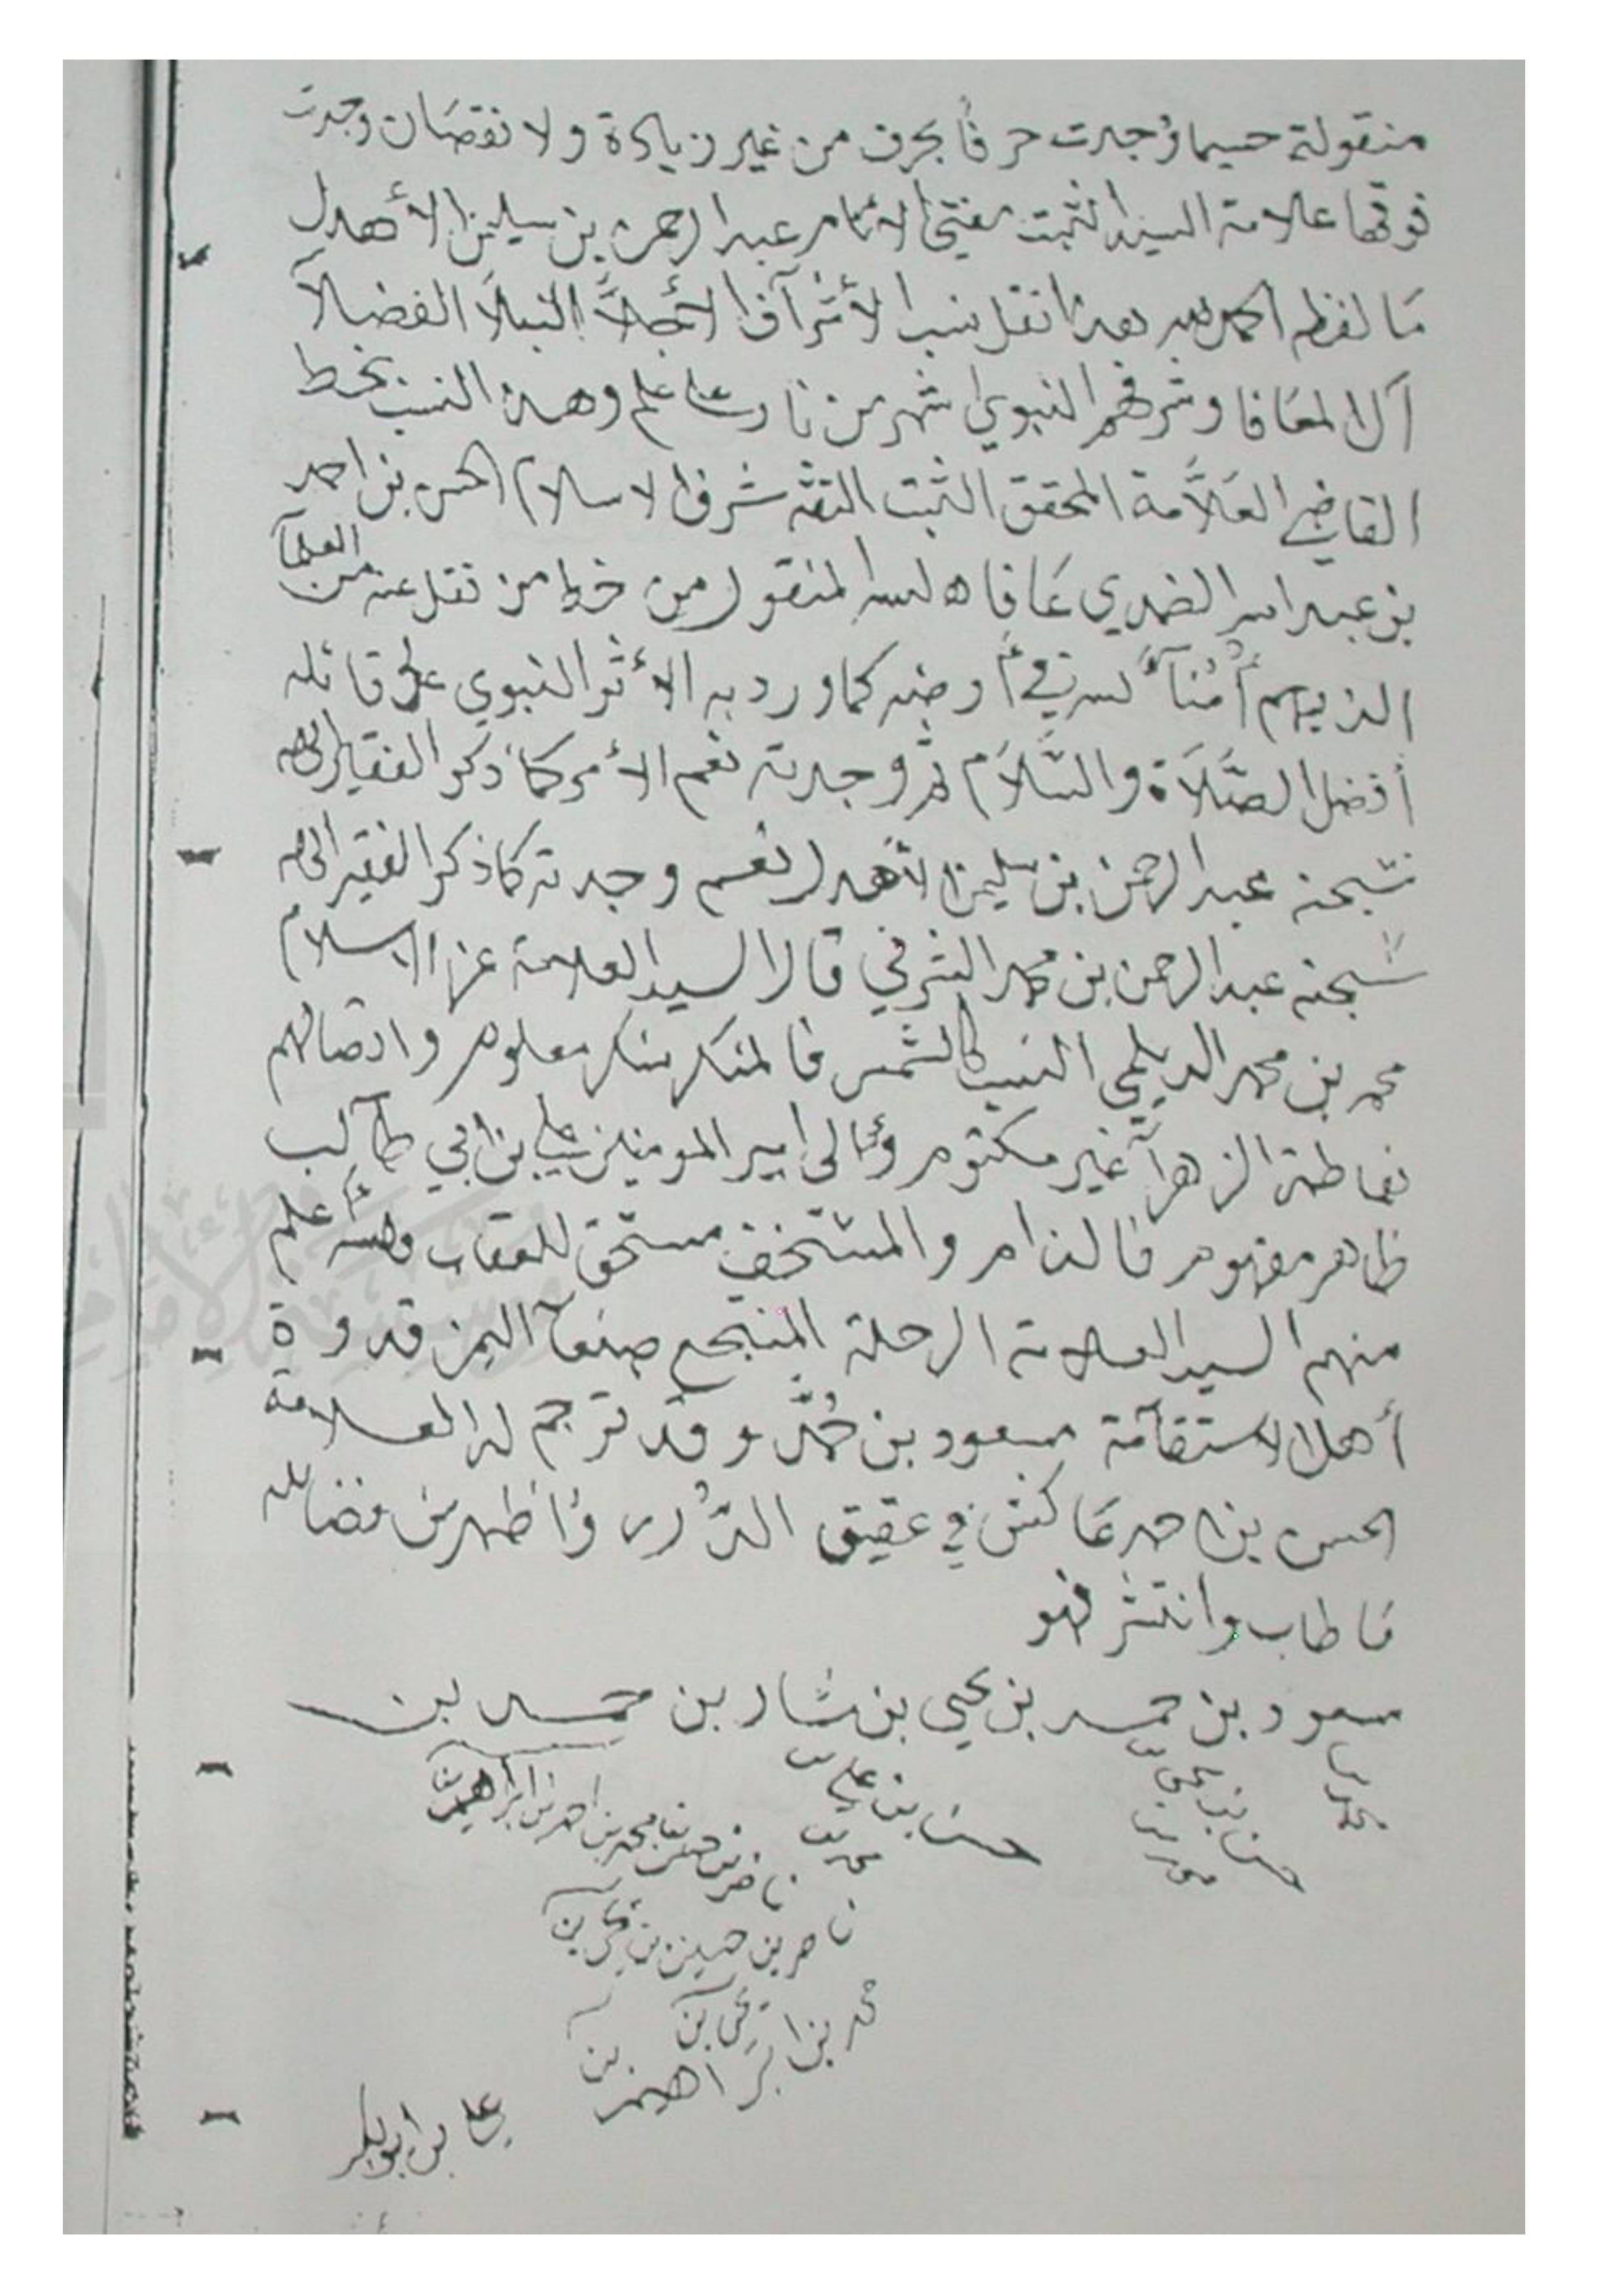 منقولة حسبما وُجدت حرفًا بحرف من غير زيادة ولا نقصان وجدت
فوقها علامة السيد الثبت مفتي الأنام عبد الرحمن بن سليمن الأهدل
مَا لفظه الحمد لله هذا نقل نسب الأشرآف الأجلَّآ النبلآ الفضلآ
آل المعَافا وشرفهم النبوي اشهر من نار على علم وهذه النسب بخط
القاضي العَلاَّمة المحقق الثبت الثقه شرف الاسلام الحسن بن احمد
بن عبد الله الضمدي عَافاه الله المنقول من خط من نقل عنه من العلمآ
الذيهم أُمَنآءُ الله في أرضه كما ورد به الأثر النبوي على قائله
أفضل الصَّلاَة والسَّلاَم ثم وجدته نعم الأمر كما ذكر الفقير إلى الله
سبحنه عبد الرحمن بن سليمن الأهدل نعم وجدته كما ذكر الفقير إلى الله
سبحنه عبد الرحمن بن محمد الشرفي قال السيد العلامة عز الإسلام
محمد بن محمد الديلمي النسب كالشمس فالمنكر منكر معلوم واتصالهم
بفاطمة الزهرآ غير مكتوم وإلى امير المومنين علي بن ابي طآلب
ظاهر مفهوم فالذام والمستخف مستحق للعقاب والله أعلم
منهم السيد العلامة الرحلة المنتجع صنعآ اليمن قدوة
أهل الاستقآمة مسعود بن حُمَّد وقد ترجم له العلامة
الحسن بن احمد عَاكش في عقيق الدُّرر وأظهر من فضائله
مَا طاب وانتشر فهو
مسعود بن حمد بن يحيى بن شار بن حمد بن
محمد بن
حسن بن يحيى بن
حسن بن علي بن
محمد بن
ناصر بن حسين بن محمد بن احمد بن ابراهيم بن
ناصر بن حسين بن
محمد بن ابراهيم بن
علي بن ابوبكر